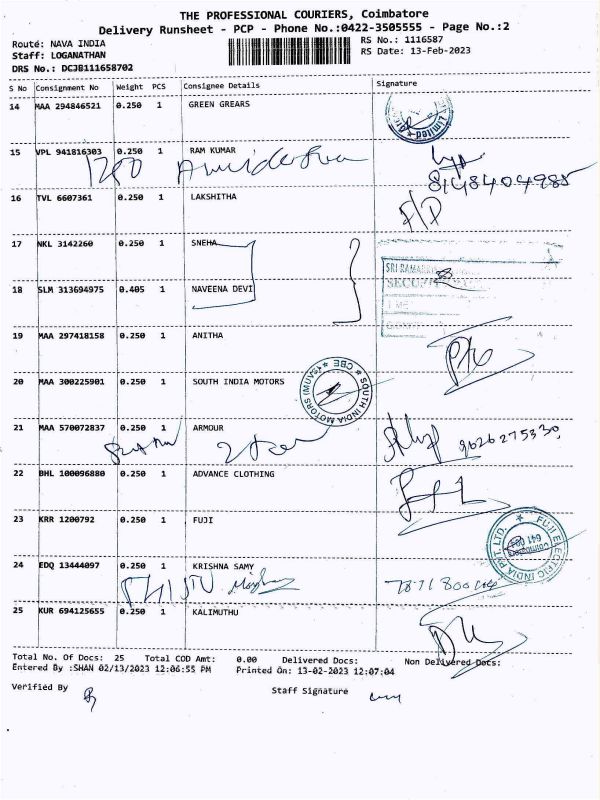 THE PROFESSIONAL COURIERS, Coimbatore
Delivery Runsheet - PCP - Phone No.:0422-3505555 - Page No.:2
Route: NAVA INDIA
RS No.: 1116587
Staff: LOGANATHAN
RS Date: 13-Feb-2023
DRS No.: DCJB111658702
S No Consignment No Weight PCS Consignee Details Signature
14 MAA 294846521 0.250 1 GREEN GREARS
Limited
15 VPL 941816303 0.250 1 RAM KUMAR
8148404985
16 TVL 6607361 0.250 1 LAKSHITHA
17 NKL 3142260 0.250 1 SNEHA
SRI RAMAKRI
SECURITY
TIME
18 SLM 313694975 0.405 1 NAVEENA DEVI
19 MAA 297418158 0.250 1 ANITHA
20 MAA 300225901 0.250 1 SOUTH INDIA MOTORS
SOUTH INDIA MOTORS (MUVAS) ★ CBE ★
21 MAA 570072837 0.250 1 ARMOUR
9626275330
22 BHL 100096880 0.250 1 ADVANCE CLOTHING
23 KRR 1200792 0.250 1 FUJI
FUJI ELECTRIC INDIA PVT. LTD. ★
24 EDQ 13444097 0.250 1 KRISHNA SAMY
25 KUR 694125655 0.250 1 KALIMUTHU
Total No. Of Docs: 25 Total COD Amt: 0.00 Delivered Docs: Non Delivered Docs:
Entered By :SHAN 02/13/2023 12:06:55 PM Printed On: 13-02-2023 12:07:04
Verified By Staff Signature